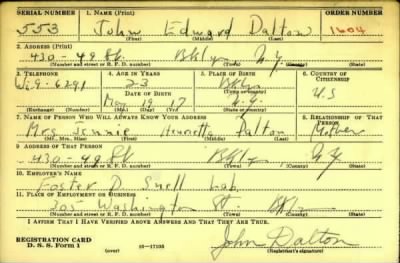 SERIAL NUMBER 1. NAME (Print) ORDER NUMBER
553 John Edward Dalton 1604
(First) (Middle) (Last)
2. ADDRESS (Print)
430-49 St. Bklyn, N.Y.
(Number and street or R. F. D. number) (Town) (County) (State)
3. TELEPHONE 4. AGE IN YEARS 5. PLACE OF BIRTH 6. COUNTRY OF CITIZENSHIP
6291 23 Bklyn
DATE OF BIRTH
May 19 17 N.Y. U.S
(Exchange) (Number) (Mo.) (Day) (Yr.) (State or country)
7. NAME OF PERSON WHO WILL ALWAYS KNOW YOUR ADDRESS 8. RELATIONSHIP OF THAT PERSON
Mrs. Jennie Henrietta Dalton Mother
(Mr., Mrs., Miss) (First) (Middle) (Last)
9. ADDRESS OF THAT PERSON
430-49 St Bklyn N.Y.
(Number and street or R. F. D. number) (Town) (County) (State)
10. EMPLOYER'S NAME
Foster D. Snell Lab.
11. PLACE OF EMPLOYMENT OR BUSINESS
305 Washington St. Bklyn
(Number and street or R. F. D. number) (Town) (County) (State)
I AFFIRM THAT I HAVE VERIFIED ABOVE ANSWERS AND THAT THEY ARE TRUE.
REGISTRATION CARD
D. S. S. Form 1 (over) 16-17105 John Dalton
(Registrant's signature)